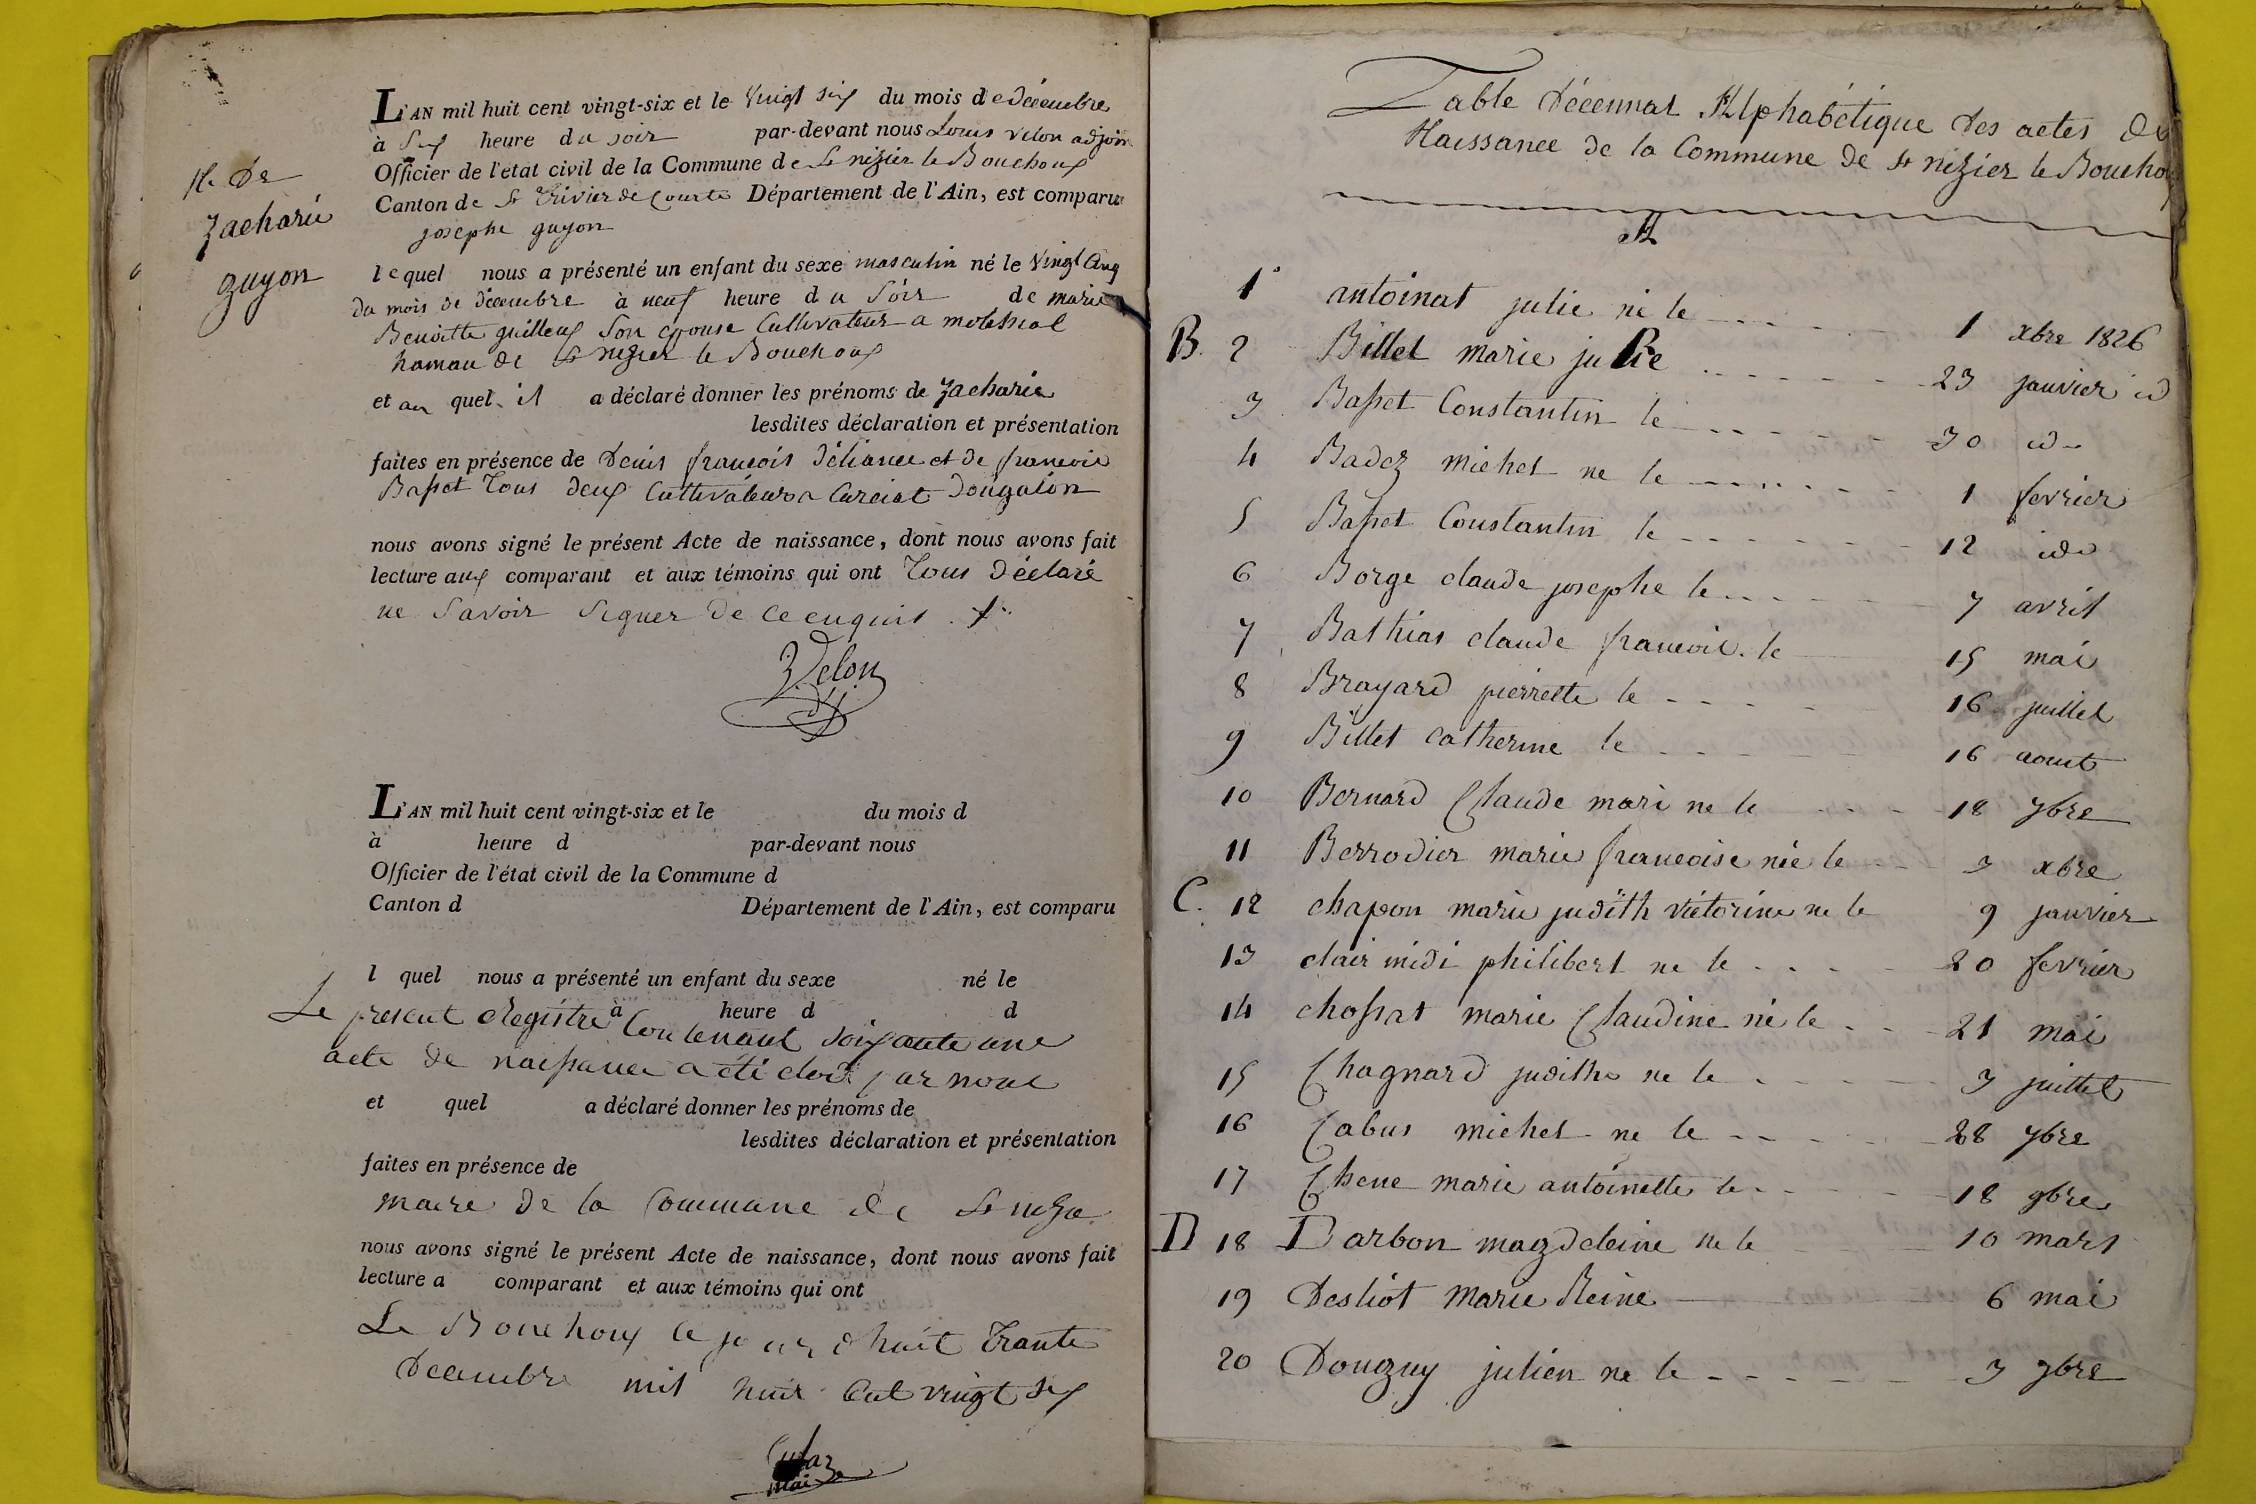 L'AN mil huit cent vingt-six et le vingt six du mois de décembre
à six heure du soir par-devant nous Louis velon adjoin
Officier de l'état civil de la Commune de St nizier le Bouchoux
Canton de St trivier de Courte Département de l'Ain, est comparu
josephe guyon
N. De
Zacharie
guyon
lequel nous a présenté un enfant du sexe masculin né le vingt Cinq
du mois de décembre à neuf heure du Soir de marie
Benoitte guilleux Son epouse Cultivateur a
hamau de St nizier le Bouchoux
et au quel il a déclaré donner les prénoms de Zacharie
lesdites déclaration et présentation
faites en présence de Denis francois déliance et de francois
Basset Tous deux Cultivateur a Curciat dongalon
nous avons signé le présent Acte de naissance, dont nous avons fait
lecture aux comparant et aux témoins qui ont Tous déclaré
ne Savoir Signer de ce enquis
Velon
L'AN mil huit cent vingt-six et le du mois d
à heure d par-devant nous
Officier de l'état civil de la Commune d
Canton d Département de l'Ain, est comparu
l quel nous a présenté un enfant du sexe né le
à heure d d
Le present Registre Contenant Soixante une
acte de naissance a été clos par nous
et quel a déclaré donner les prénoms de
lesdites déclaration et présentation
faites en présence de
maire de la Commune de St nizie
nous avons signé le présent Acte de naissance, dont nous avons fait
lecture a comparant et aux témoins qui ont
Le Bouchoux le jour d huit Trante
Decembre mil huit Cent vingt six
Table décennal Alphabétique des actes de
Naissance de la Commune de St nizier le Boucho
A
1 antoinat julie né le 1 xbre 1826
B. 2 Billet marie julie 23 janvier id
3 Basset Constantin le 30 id
4 Badez michel ne le 1 fevrier
5 Basset Constantin le 12 id
6 Borge claude josephe le 7 avril
7 Bathias claude francois le 15 mai
8 Brayard pierrette le 16 juillet
9 Billet catherine le 16 aout
10 Bernard Claude mari ne le 18 7bre
11 Berrodier marie francoise née le 3 xbre
C. 12 chapon marie judith victorine ne le 9 janvier
13 clair midi philibert ne le 20 fevrier
14 chossat marie Claudine né le 21 mai
15 Chagnard judithe ne le 3 juillet
16 Cabus michel ne le 28 7bre
17 Chene marie antoinette le 18 9bre
D 18 Darbon magdeleine ne le 10 mars
19 Desliot Marie Reine 6 mai
20 Douguy julien ne le 3 9bre